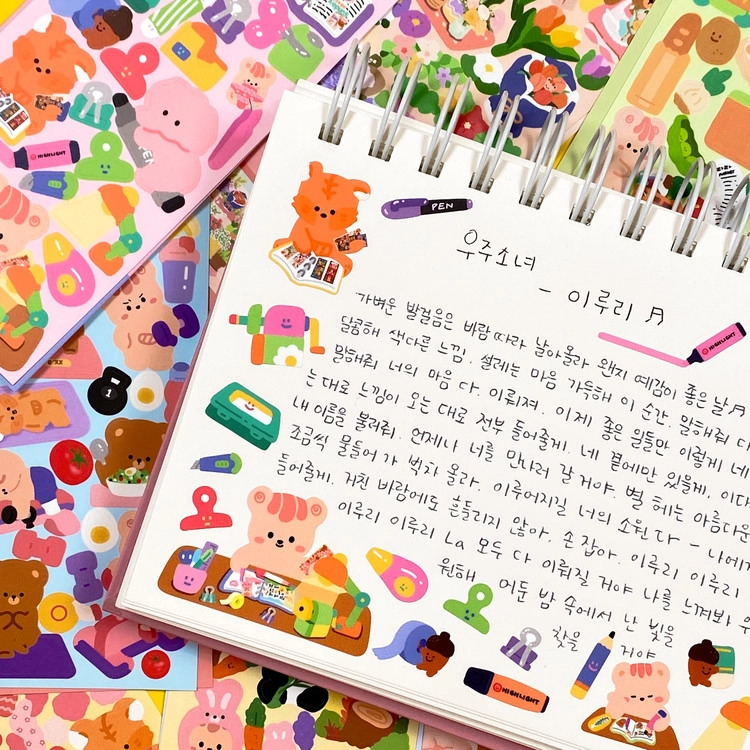 PEN
우주소녀
- 이루리 ♬
가벼운 발걸음은 바람 따라 날아올라 왠지 예감이 좋은 날♬
달콤해 색다른 느낌. 설레는 마음 가득해 이 순간. 말해줘 다
말해줘 너의 마음 다. 이뤄져. 이제 좋은 일들만 이렇게 네
는 대로 느낌이 오는 대로 전부 들어줄게. 네 곁에만 있을게. 이다
내 이름을 불러줘. 언제나 너를 만나러 갈 거야. 별 헤는 아름다운
조금씩 물들어 가 벅차 올라. 이루어지길 너의 소원 다 - 나에게
들어줄게. 거친 바람에도 흔들리지 않아. 손 잡아. 이루리 이루리
이루리 이루리 La 모두 다 이뤄질 거야 나를 느껴봐
원해 어둔 밤 속에서 난 빛을
찾을 거야
HIGHLIGHT
HIGHLIGHT
HIGHLIGHT
1